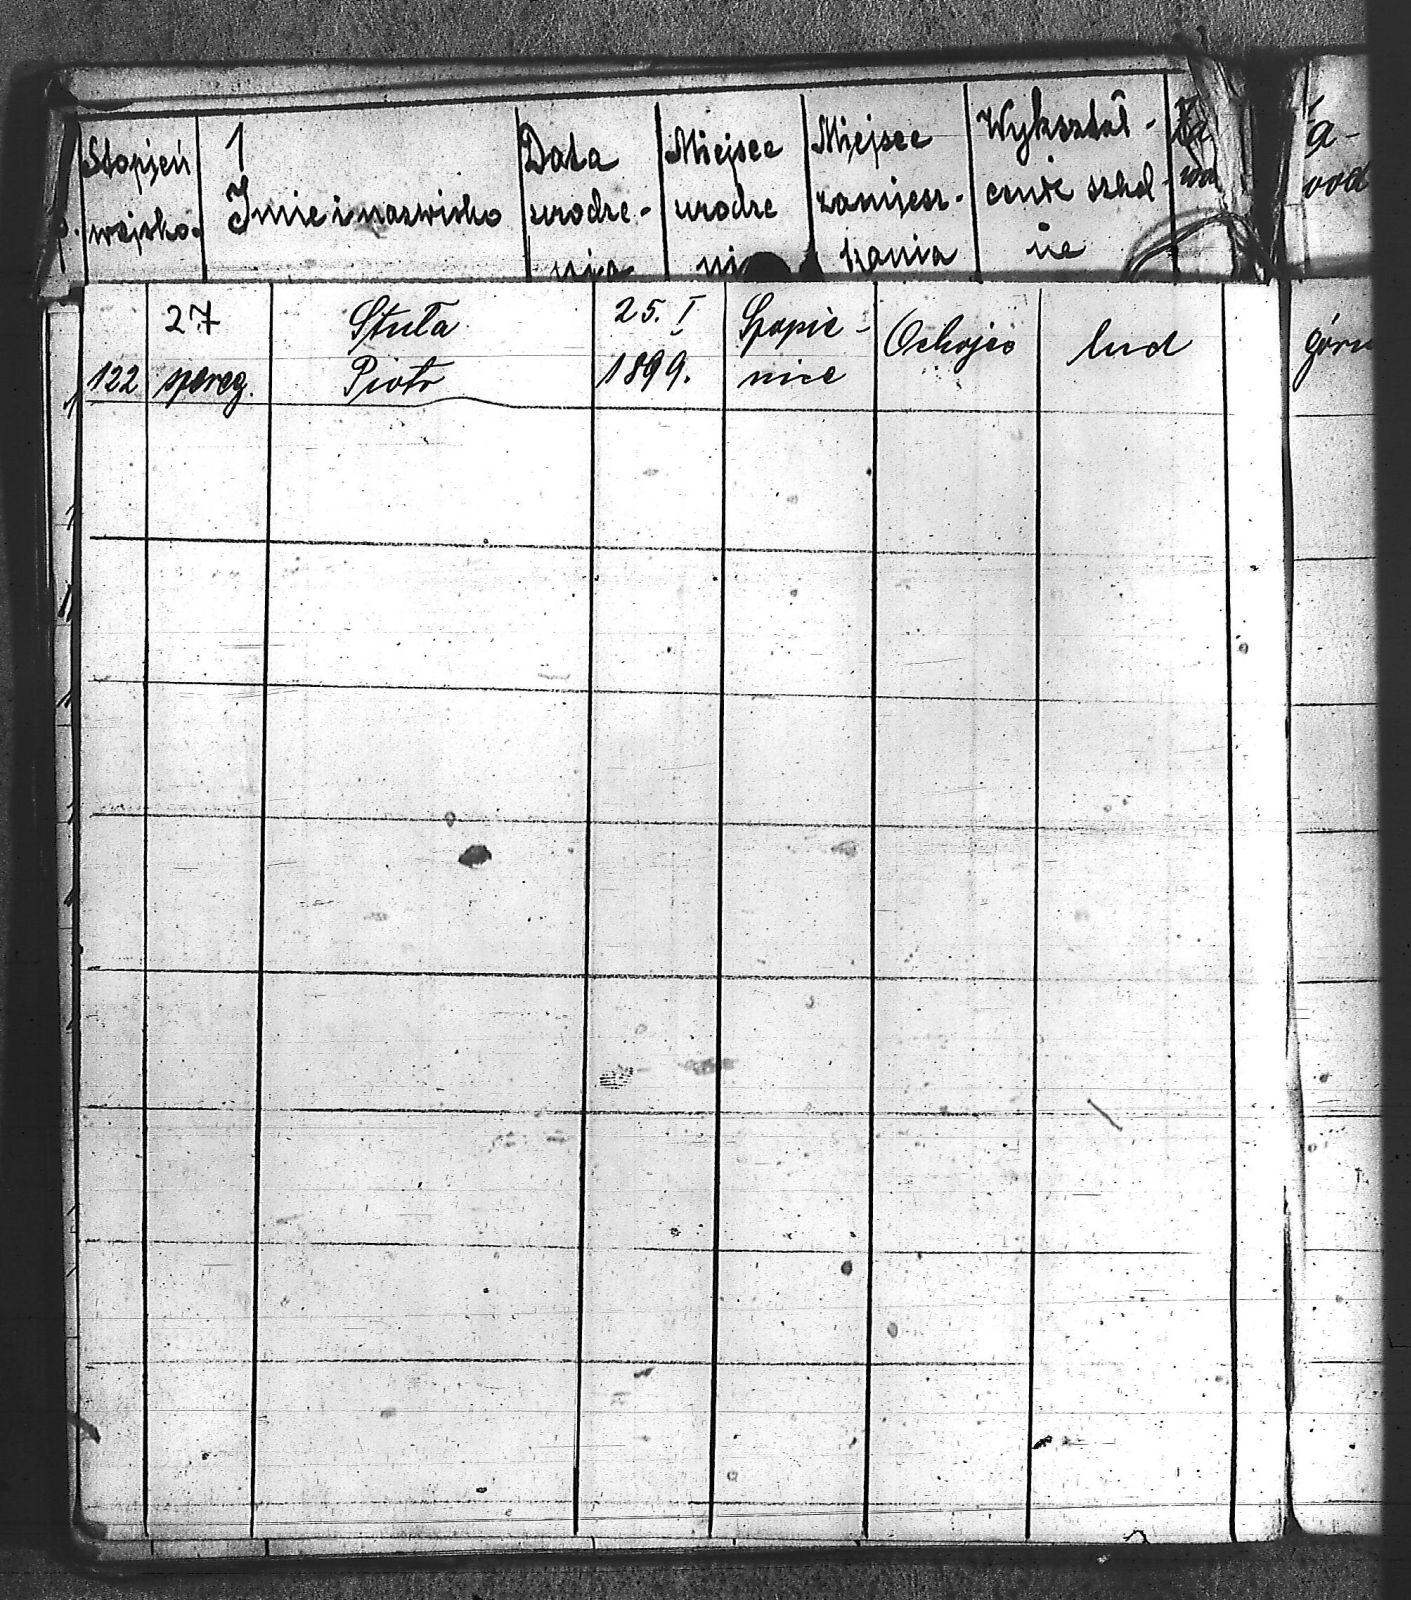 Stopień
wojsko.
1
Imie i nazwisko
Data
urodze-
nia
Miejsce
urodze
ni
Miejsce
zamiesz-
kania
Wykształ-
cenie szkol
ne
a-
wod
27
122
Stuła
Piotr
25. I
1899.
nice
Ochojec
lud
górn